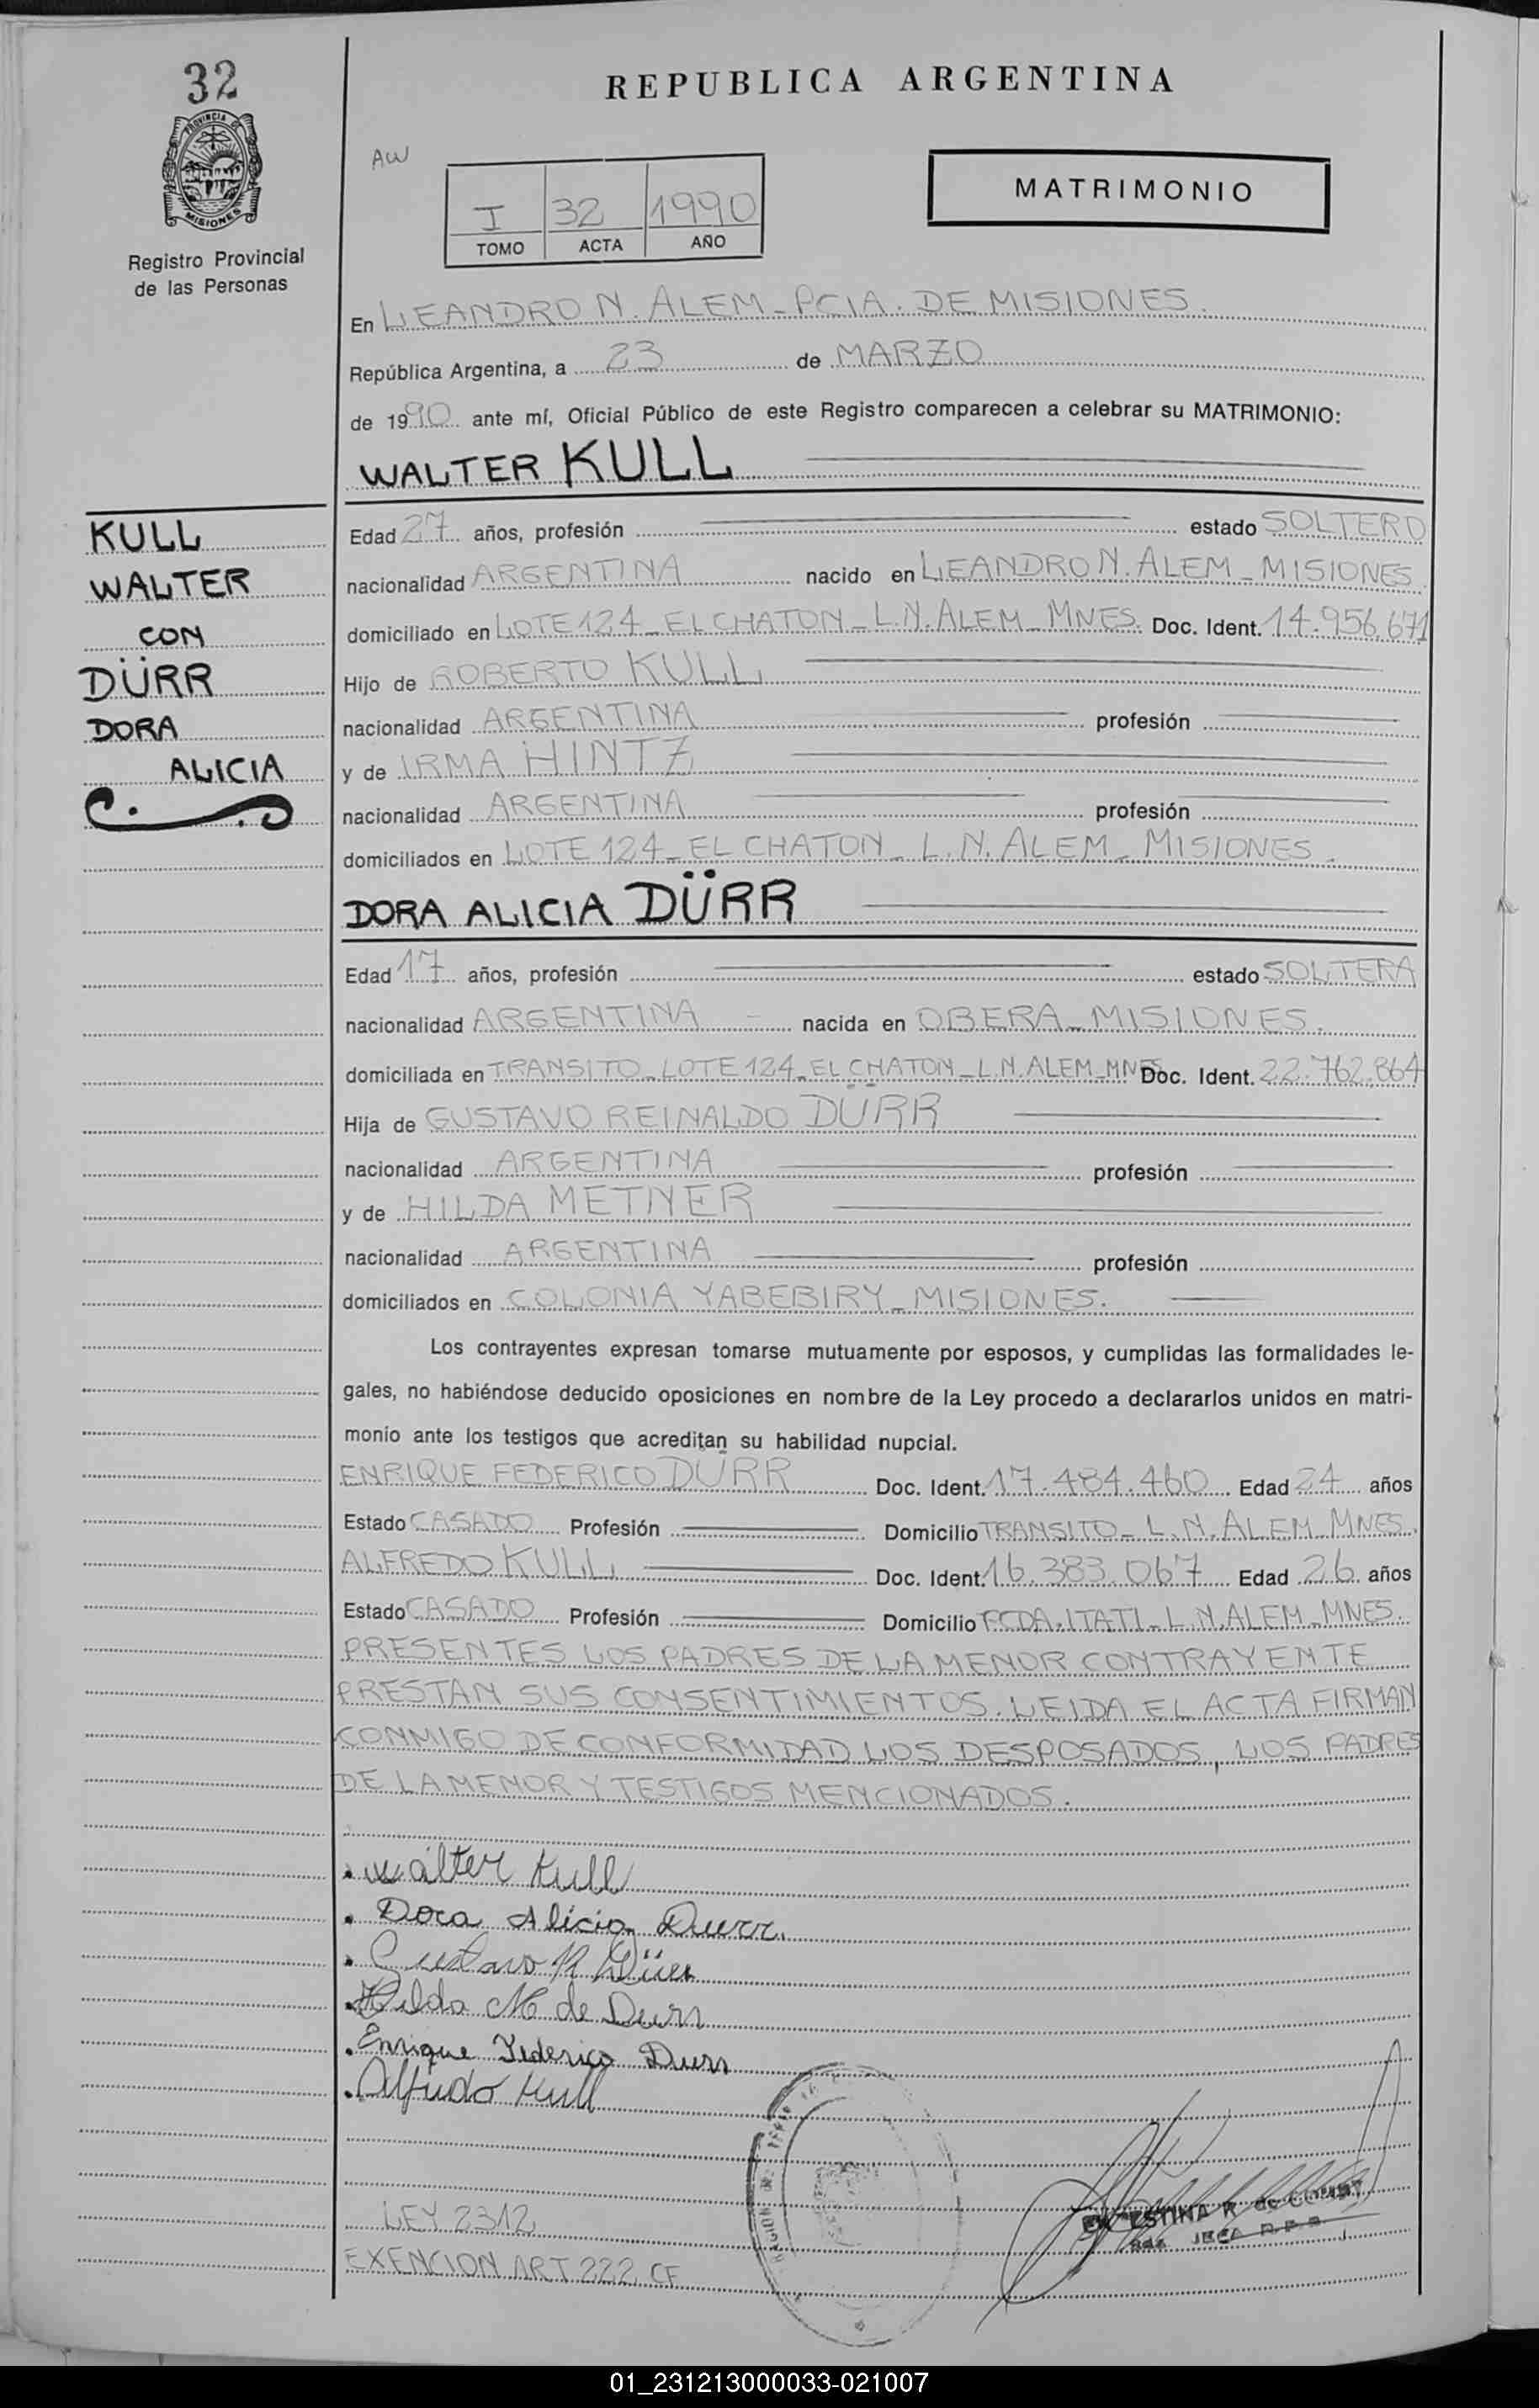 32
PROVINCIA DE
MISIONES
Registro Provincial
de las Personas
REPUBLICA ARGENTINA
AW
MATRIMONIO
I 32 1990
TOMO ACTA AÑO
En LEANDRO N. ALEM - PCIA. DE MISIONES.
República Argentina, a 23 de MARZO
de 1990 ante mí, Oficial Público de este Registro comparecen a celebrar su MATRIMONIO:
WALTER KULL
KULL
WALTER
CON
DÜRR
DORA
ALICIA
Edad 27 años, profesión estado SOLTERO
nacionalidad ARGENTINA nacido en LEANDRO N. ALEM - MISIONES
domiciliado en LOTE 124 - EL CHATON - L.N. ALEM - MNES. Doc. Ident. 14.956.671
Hijo de ROBERTO KULL
nacionalidad ARGENTINA profesión
y de IRMA HINTZ
nacionalidad ARGENTINA profesión
domiciliados en LOTE 124 - EL CHATON - L.N. ALEM - MISIONES.
DORA ALICIA DÜRR
Edad 17 años, profesión estado SOLTERA
nacionalidad ARGENTINA - nacida en OBERA - MISIONES.
domiciliada en TRANSITO - LOTE 124 - EL CHATON - L.N. ALEM - MNES Doc. Ident. 22.762.864
Hija de GUSTAVO REINALDO DÜRR
nacionalidad ARGENTINA profesión
y de HILDA METNER
nacionalidad ARGENTINA profesión
domiciliados en COLONIA YABEBIRY - MISIONES.
Los contrayentes expresan tomarse mutuamente por esposos, y cumplidas las formalidades le-
gales, no habiéndose deducido oposiciones en nombre de la Ley procedo a declararlos unidos en matri-
monio ante los testigos que acreditan su habilidad nupcial.
ENRIQUE FEDERICO DÜRR Doc. Ident. 17.484.460 Edad 24 años
Estado CASADO Profesión Domicilio TRANSITO - L.N. ALEM - MNES.
ALFREDO KULL Doc. Ident. 16.383.067 Edad 26 años
Estado CASADO Profesión Domicilio PCDA. ITATI - L.N. ALEM - MNES.
PRESENTES LOS PADRES DE LA MENOR CONTRAYENTE
PRESTAN SUS CONSENTIMIENTOS. LEIDA EL ACTA FIRMAN
CONMIGO DE CONFORMIDAD LOS DESPOSADOS, LOS PADRES
DE LA MENOR Y TESTIGOS MENCIONADOS.
Walter Kull
Dora Alicia Durr.
Gustavo R Dürr
Hilda M de Durr
Enrique Federico Durr
Alfredo Kull
LEY 2312
EXENCION ART 222 CF
01_231213000033-021007